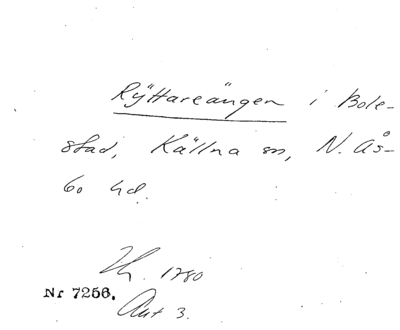 Ryttareängen i Bole-
stad, Källna sn, N. Ås-
bo hd.
1780
Nr 7256.
Akt 3.